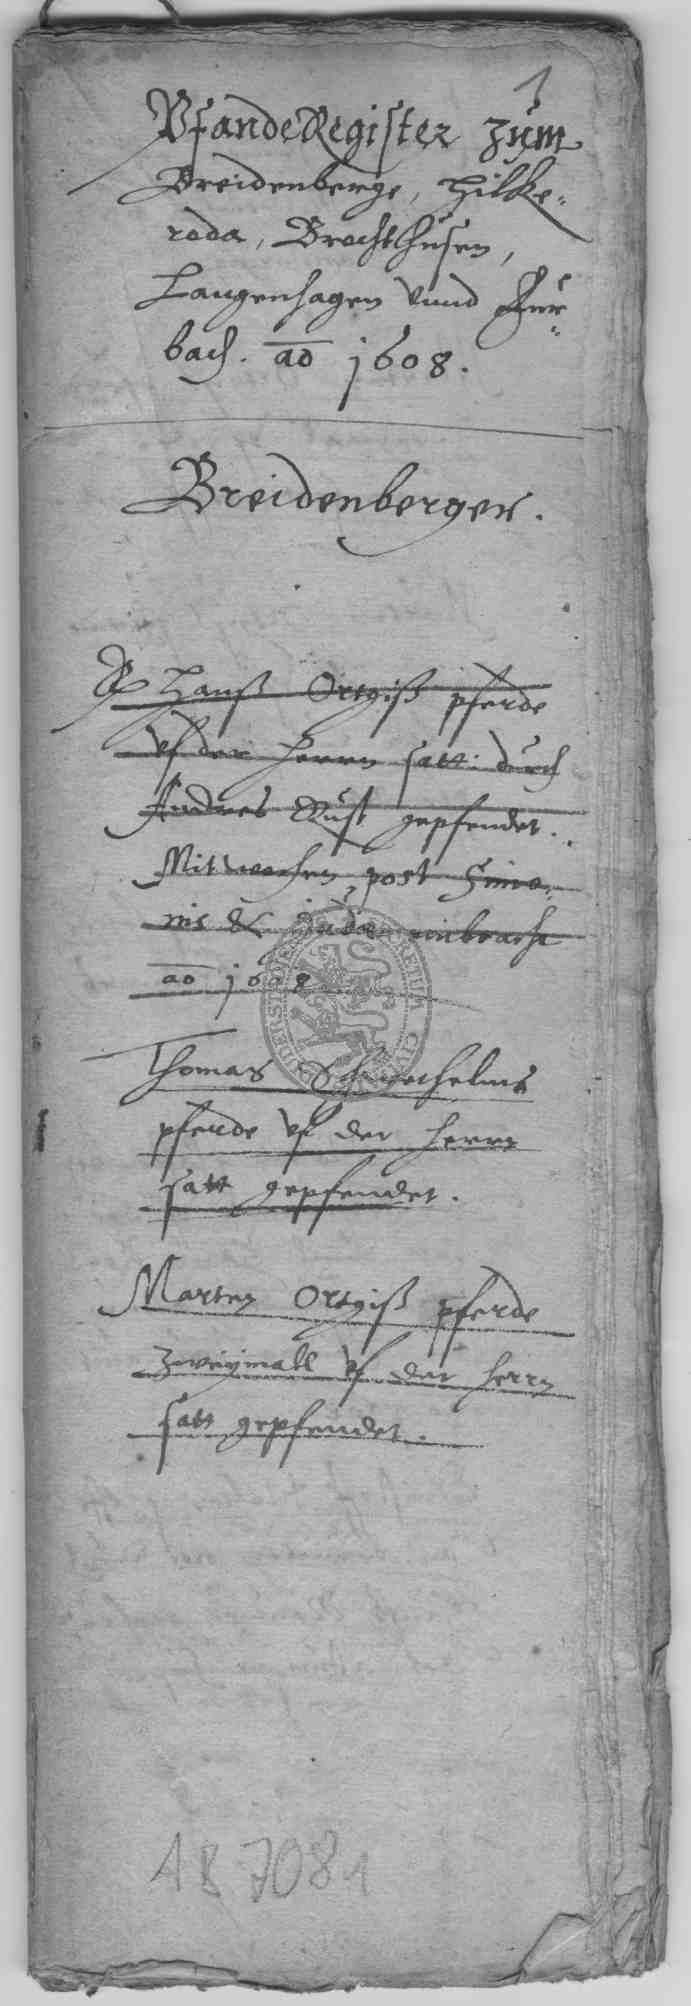 1
PfandeRegister zum
Breidenberge, Hilke-
roda, Brochthusen,
Langenhagen vnnd Fur-
bach. ao 1608.
Breidenberger.
Hanß Ortgiß pferde
vf der herrn satt durch
Andres Rust gepfendet.
Mitwochen post Simo-
nis & Judae einbracht
ao 1608
Thomas
pferde vf der herrn
satt gepfendet.
Marten Ortgiß pferde
zweymall vf der herrn
satt gepfendet.
AB 7081